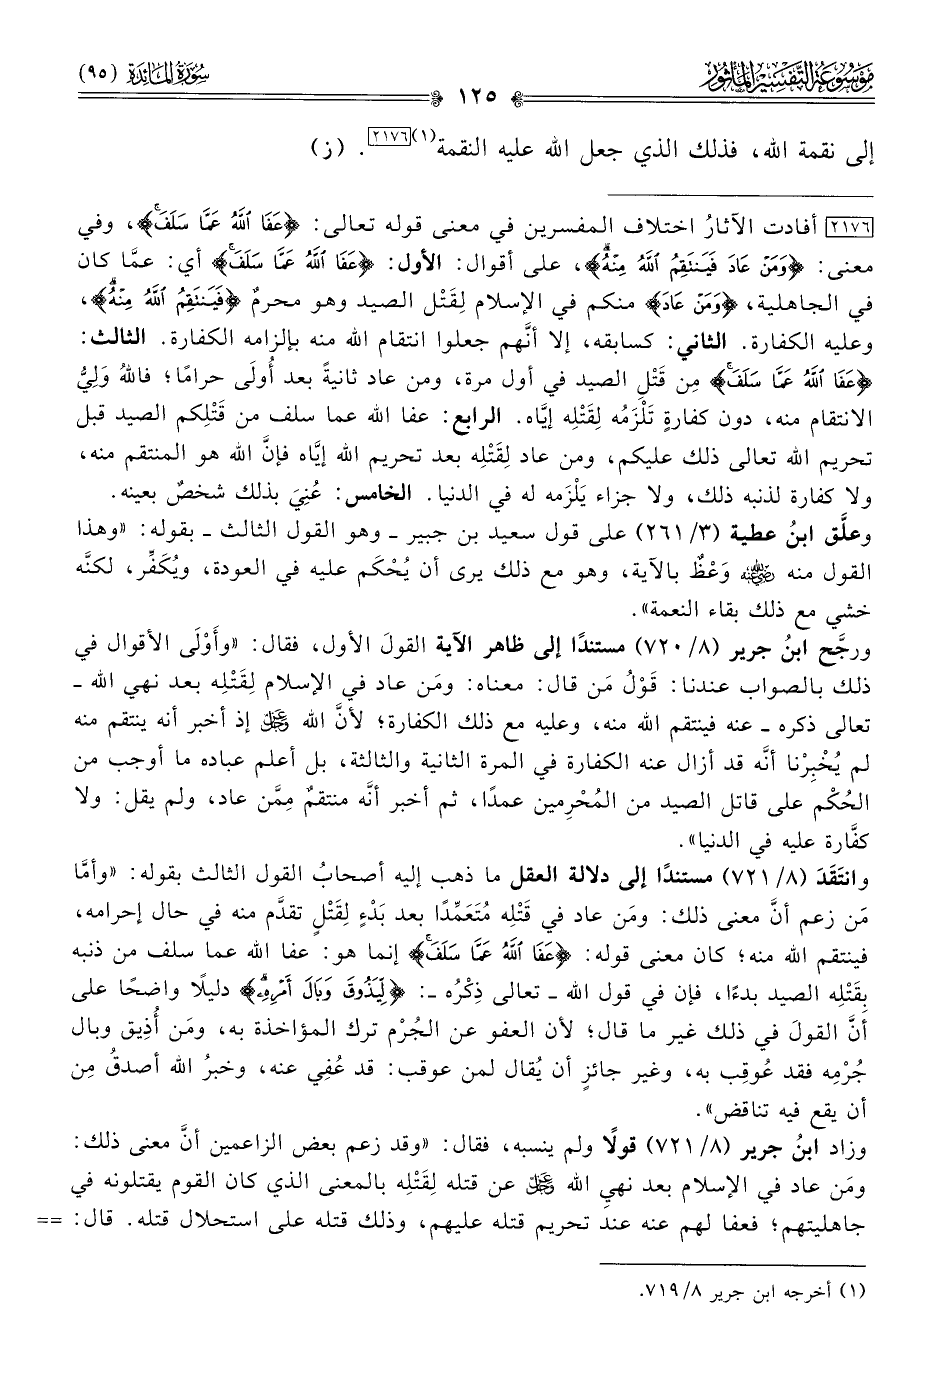 مَوْسُوعَة التَّفْسِير المَأْثُور
١٢٥
سُورَة المَائِدَة (٩٥)
إلى نقمة الله، فذلك الذي جعل الله عليه النقمة(١)[٢١٧٦]. (ز)
[٢١٧٦] أفادت الآثارُ اختلاف المفسرين في معنى قوله تعالى: ﴿عَفَا ٱللَّهُ عَمَّا سَلَفَۚ﴾، وفي
معنى: ﴿وَمَنۡ عَادَ فَيَنتَقِمُ ٱللَّهُ مِنۡهُۗ﴾، على أقوال: الأول: ﴿عَفَا ٱللَّهُ عَمَّا سَلَفَۚ﴾ أي: عمَّا كان
في الجاهلية، ﴿وَمَنۡ عَادَ﴾ منكم في الإسلام لِقَتْل الصيد وهو محرمٌ ﴿فَيَنتَقِمُ ٱللَّهُ مِنۡهُۗ﴾،
وعليه الكفارة. الثاني: كسابقه، إلا أنَّهم جعلوا انتقام الله منه بإلزامه الكفارة. الثالث:
﴿عَفَا ٱللَّهُ عَمَّا سَلَفَۚ﴾ مِن قَتْلِ الصيد في أول مرة، ومن عاد ثانيةً بعد أُولَى حرامًا؛ فاللهُ وَلِيُّ
الانتقام منه، دون كفارةٍ تَلْزَمُه لِقَتْله إيَّاه. الرابع: عفا الله عما سلف من قَتْلِكم الصيد قبل
تحريم الله تعالى ذلك عليكم، ومن عاد لِقَتْلِه بعد تحريم الله إيَّاه فإنَّ الله هو المنتقم منه،
ولا كفارة لذنبه ذلك، ولا جزاء يَلْزَمه له في الدنيا. الخامس: عُنِيَ بذلك شخصٌ بعينه.
وعلَّق ابنُ عطية (٣/ ٢٦١) على قول سعيد بن جبير ـ وهو القول الثالث ـ بقوله: «وهذا
القول منه ﷺ وَعْظٌ بالآية، وهو مع ذلك يرى أن يُحْكَم عليه في العودة، ويُكَفِّر، لكنَّه
خشي مع ذلك بقاء النعمة».
ورجَّح ابنُ جرير (٨/ ٧٢٠) مستندًا إلى ظاهر الآية القولَ الأول، فقال: «وأَوْلَى الأقوال في
ذلك بالصواب عندنا: قَوْلُ مَن قال: معناه: ومَن عاد في الإسلام لِقَتْلِه بعد نهي الله ـ
تعالى ذكره ـ عنه فينتقم الله منه، وعليه مع ذلك الكفارة؛ لأنَّ الله ﷻ إذ أخبر أنه ينتقم منه
لم يُخْبِرْنا أنَّه قد أزال عنه الكفارة في المرة الثانية والثالثة، بل أعلم عباده ما أوجب من
الحُكْم على قاتل الصيد من المُحْرِمين عمدًا، ثم أخبر أنَّه منتقمٌ مِمَّن عاد، ولم يقل: ولا
كفَّارة عليه في الدنيا».
وانتَقَدَ (٨/ ٧٢١) مستندًا إلى دلالة العقل ما ذهب إليه أصحابُ القول الثالث بقوله: «وأمَّا
مَن زعم أنَّ معنى ذلك: ومَن عاد في قَتْله مُتَعَمِّدًا بعد بَدْءٍ لِقَتْلٍ تقدَّم منه في حال إحرامه،
فينتقم الله منه؛ كان معنى قوله: ﴿عَفَا ٱللَّهُ عَمَّا سَلَفَۚ﴾ إنما هو: عفا الله عما سلف من ذنبه
بِقَتْلِه الصيد بدءًا، فإن في قول الله ـ تعالى ذِكْرُه ـ: ﴿لِّيَذُوقَ وَبَالَ أَمۡرِهِۦۗ﴾ دليلًا واضحًا على
أنَّ القولَ في ذلك غير ما قال؛ لأن العفو عن الجُرْم ترك المؤاخذة به، ومَن أُذِيق وبال
جُرْمِه فقد عُوقِب به، وغير جائزٍ أن يُقال لمن عوقب: قد عُفِي عنه، وخبرُ الله أصدقُ مِن
أن يقع فيه تناقض».
وزاد ابنُ جرير (٨/ ٧٢١) قولًا ولم ينسبه، فقال: «وقد زعم بعض الزاعمين أنَّ معنى ذلك:
ومَن عاد في الإسلام بعد نهيِ الله ﷻ عن قتله لِقَتْلِه بالمعنى الذي كان القوم يقتلونه في
جاهليتهم؛ فعفا لهم عنه عند تحريم قتله عليهم، وذلك قتله على استحلال قتله. قال: ==
(١) أخرجه ابن جرير ٨/ ٧١٩.